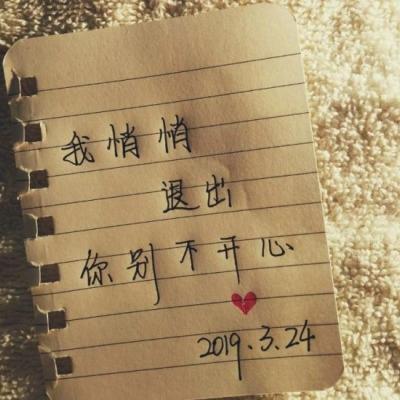 我悄悄
退出
你别不开心
2019.3.24